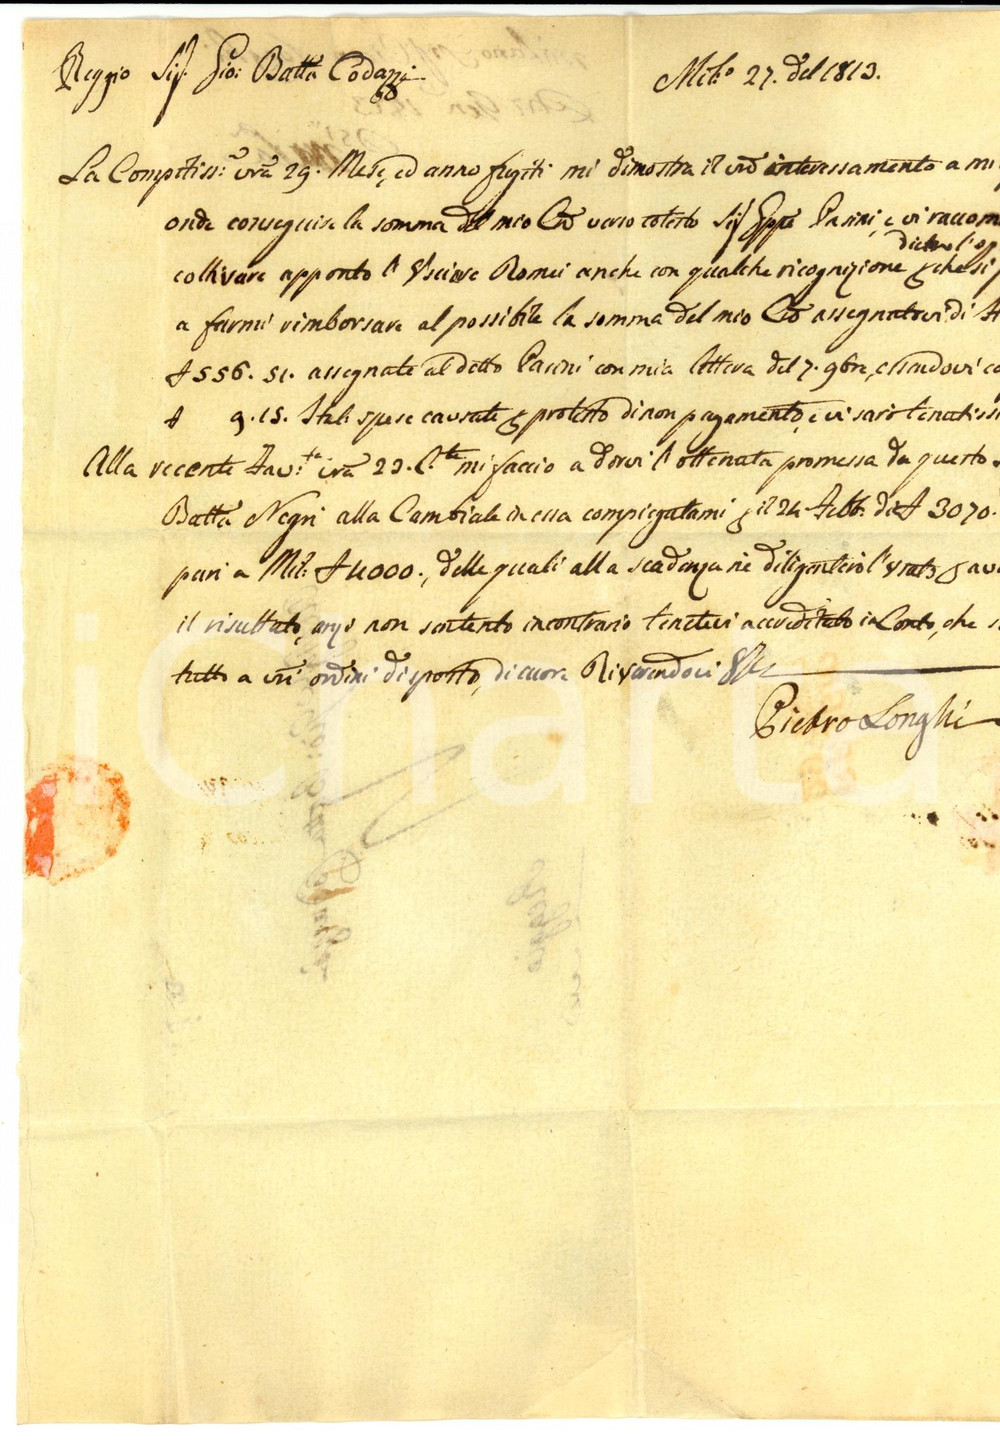 Reggio Sig. Gio: Batta Codazzi
Mil.º 27. del 1813.
La Compitiss: vrã 29. Mese, ed anno fugiti mi dimostra il vrõ interessamento a mio
onde conseguire la somma del mio Crõ verso cotesto Sig Gppe Parini, e vi raccom
dietro l'op
coltivare apponto l'Usciere Romei anche con qualche ricognizione che si
a farmi rimborsare al possibile la somma del mio Crõ assegnatovi di
556. 51. assegnate al detto Parini con mia lettera del 7. 9bre, essendovi
9. 15. Ital: spese causate protesto di non pagamento, e vi sarò tenutissi
Alla recente Fav:ta vrã 23. C.te mi faccio a dirvi l'ottenuta promessa da questo
Batta Negri alla Cambiale in essa compiegatami il 24 Febb: di 3070.
pari a Mil: 4000., delle quali alla scadenza ne diligenterò
il risultato, anzi non sentento incontrario tenetevi accreditato in Conto, che
tutto a vri ordini disposto, di cuore Riverendovi
Pietro Longhi
Charta